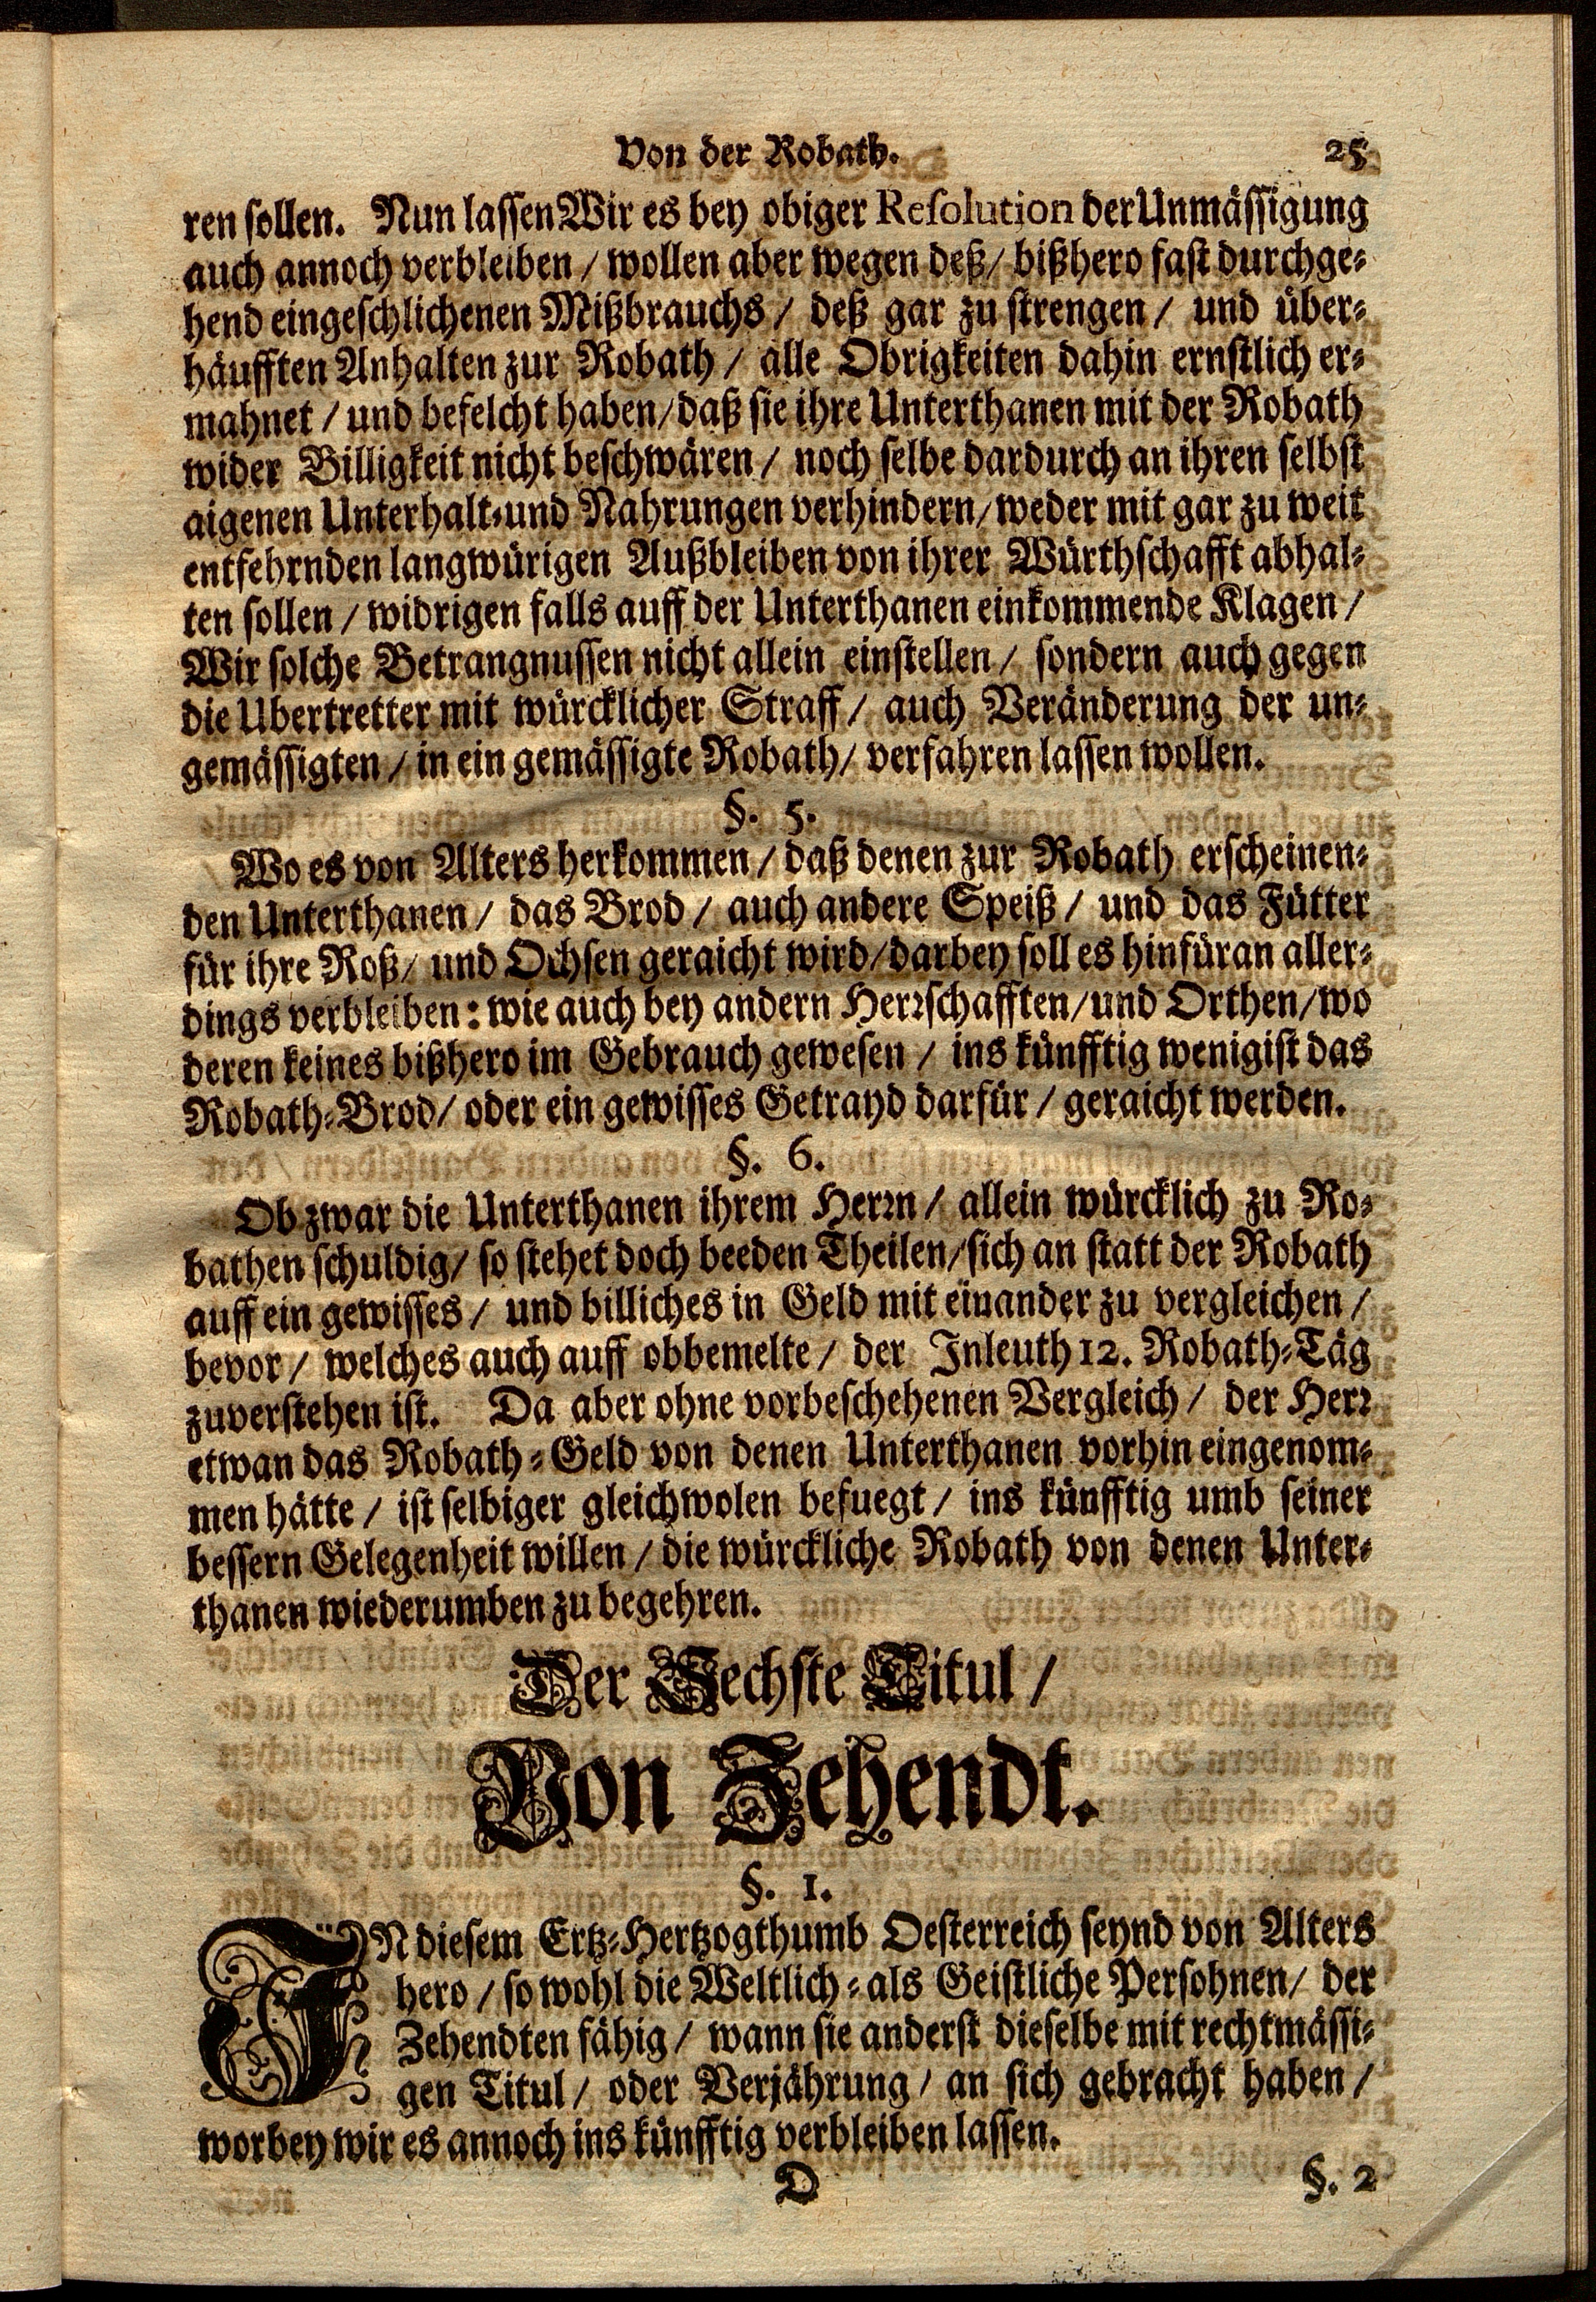 Von der Robath. 25
ren sollen. Nun lassen Wir es bey obiger Resolution der Unmässigung
auch annoch verbleiben / wollen aber wegen deß / bißhero fast durchge-
hend eingeschlichenen Mißbrauchs / deß gar zu strengen / und über-
häufften Anhalten zur Robath / alle Obrigkeiten dahin ernstlich er-
mahnet / und befelcht haben / daß sie ihre Unterthanen mit der Robath
wider Billigkeit nicht beschwären / noch selbe dardurch an ihren selbst
aigenen Unterhalt-und Nahrungen verhindern / weder mit gar zu weit
entfehrnden langwürigen Außbleiben von ihrer Würthschafft abhal-
ten sollen / widrigen falls auff der Unterthanen einkommende Klagen /
Wir solche Betrangnussen nicht allein einstellen / sondern auch gegen
die Ubertretter mit würcklicher Straff / auch Veränderung der un-
gemässigten / in ein gemässigte Robath / verfahren lassen wollen.
§. 5.
Wo es von Alters herkommen / daß denen zur Robath erscheinen-
den Unterthanen / das Brod / auch andere Speiß / und das Fütter
für ihre Roß / und Ochsen geraicht wird / darbey soll es hinfüran aller-
dings verbleiben: wie auch bey andern Herrschafften / und Orthen / wo
deren keines bißhero im Gebrauch gewesen / ins künfftig wenigist das
Robath-Brod / oder ein gewisses Getrayd darfür / geraicht werden.
§. 6.
Ob zwar die Unterthanen ihrem Herrn / allein würcklich zu Ro-
bathen schuldig / so stehet doch beeden Theilen / sich an statt der Robath
auff ein gewisses / und billiches in Geld mit einander zu vergleichen /
bevor / welches auch auff obbemelte / der Inleuth 12. Robath-Täg
zuverstehen ist. Da aber ohne vorbeschehenen Vergleich / der Herr
etwan das Robath-Geld von denen Unterthanen vorhin eingenom-
men hätte / ist selbiger gleichwolen befuegt / ins künfftig umb seiner
bessern Gelegenheit willen / die würckliche Robath von denen Unter-
thanen wiederumben zu begehren.
Der Sechste Titul /
Von Zehendt.
§. 1.
IN diesem Ertz-Hertzogthumb Oesterreich seynd von Alters
hero / so wohl die Weltlich-als Geistliche Persohnen / der
Zehendten fähig / wann sie anderst dieselbe mit rechtmässi-
gen Titul / oder Verjährung / an sich gebracht haben /
worbey wir es annoch ins künfftig verbleiben lassen.
D §. 2